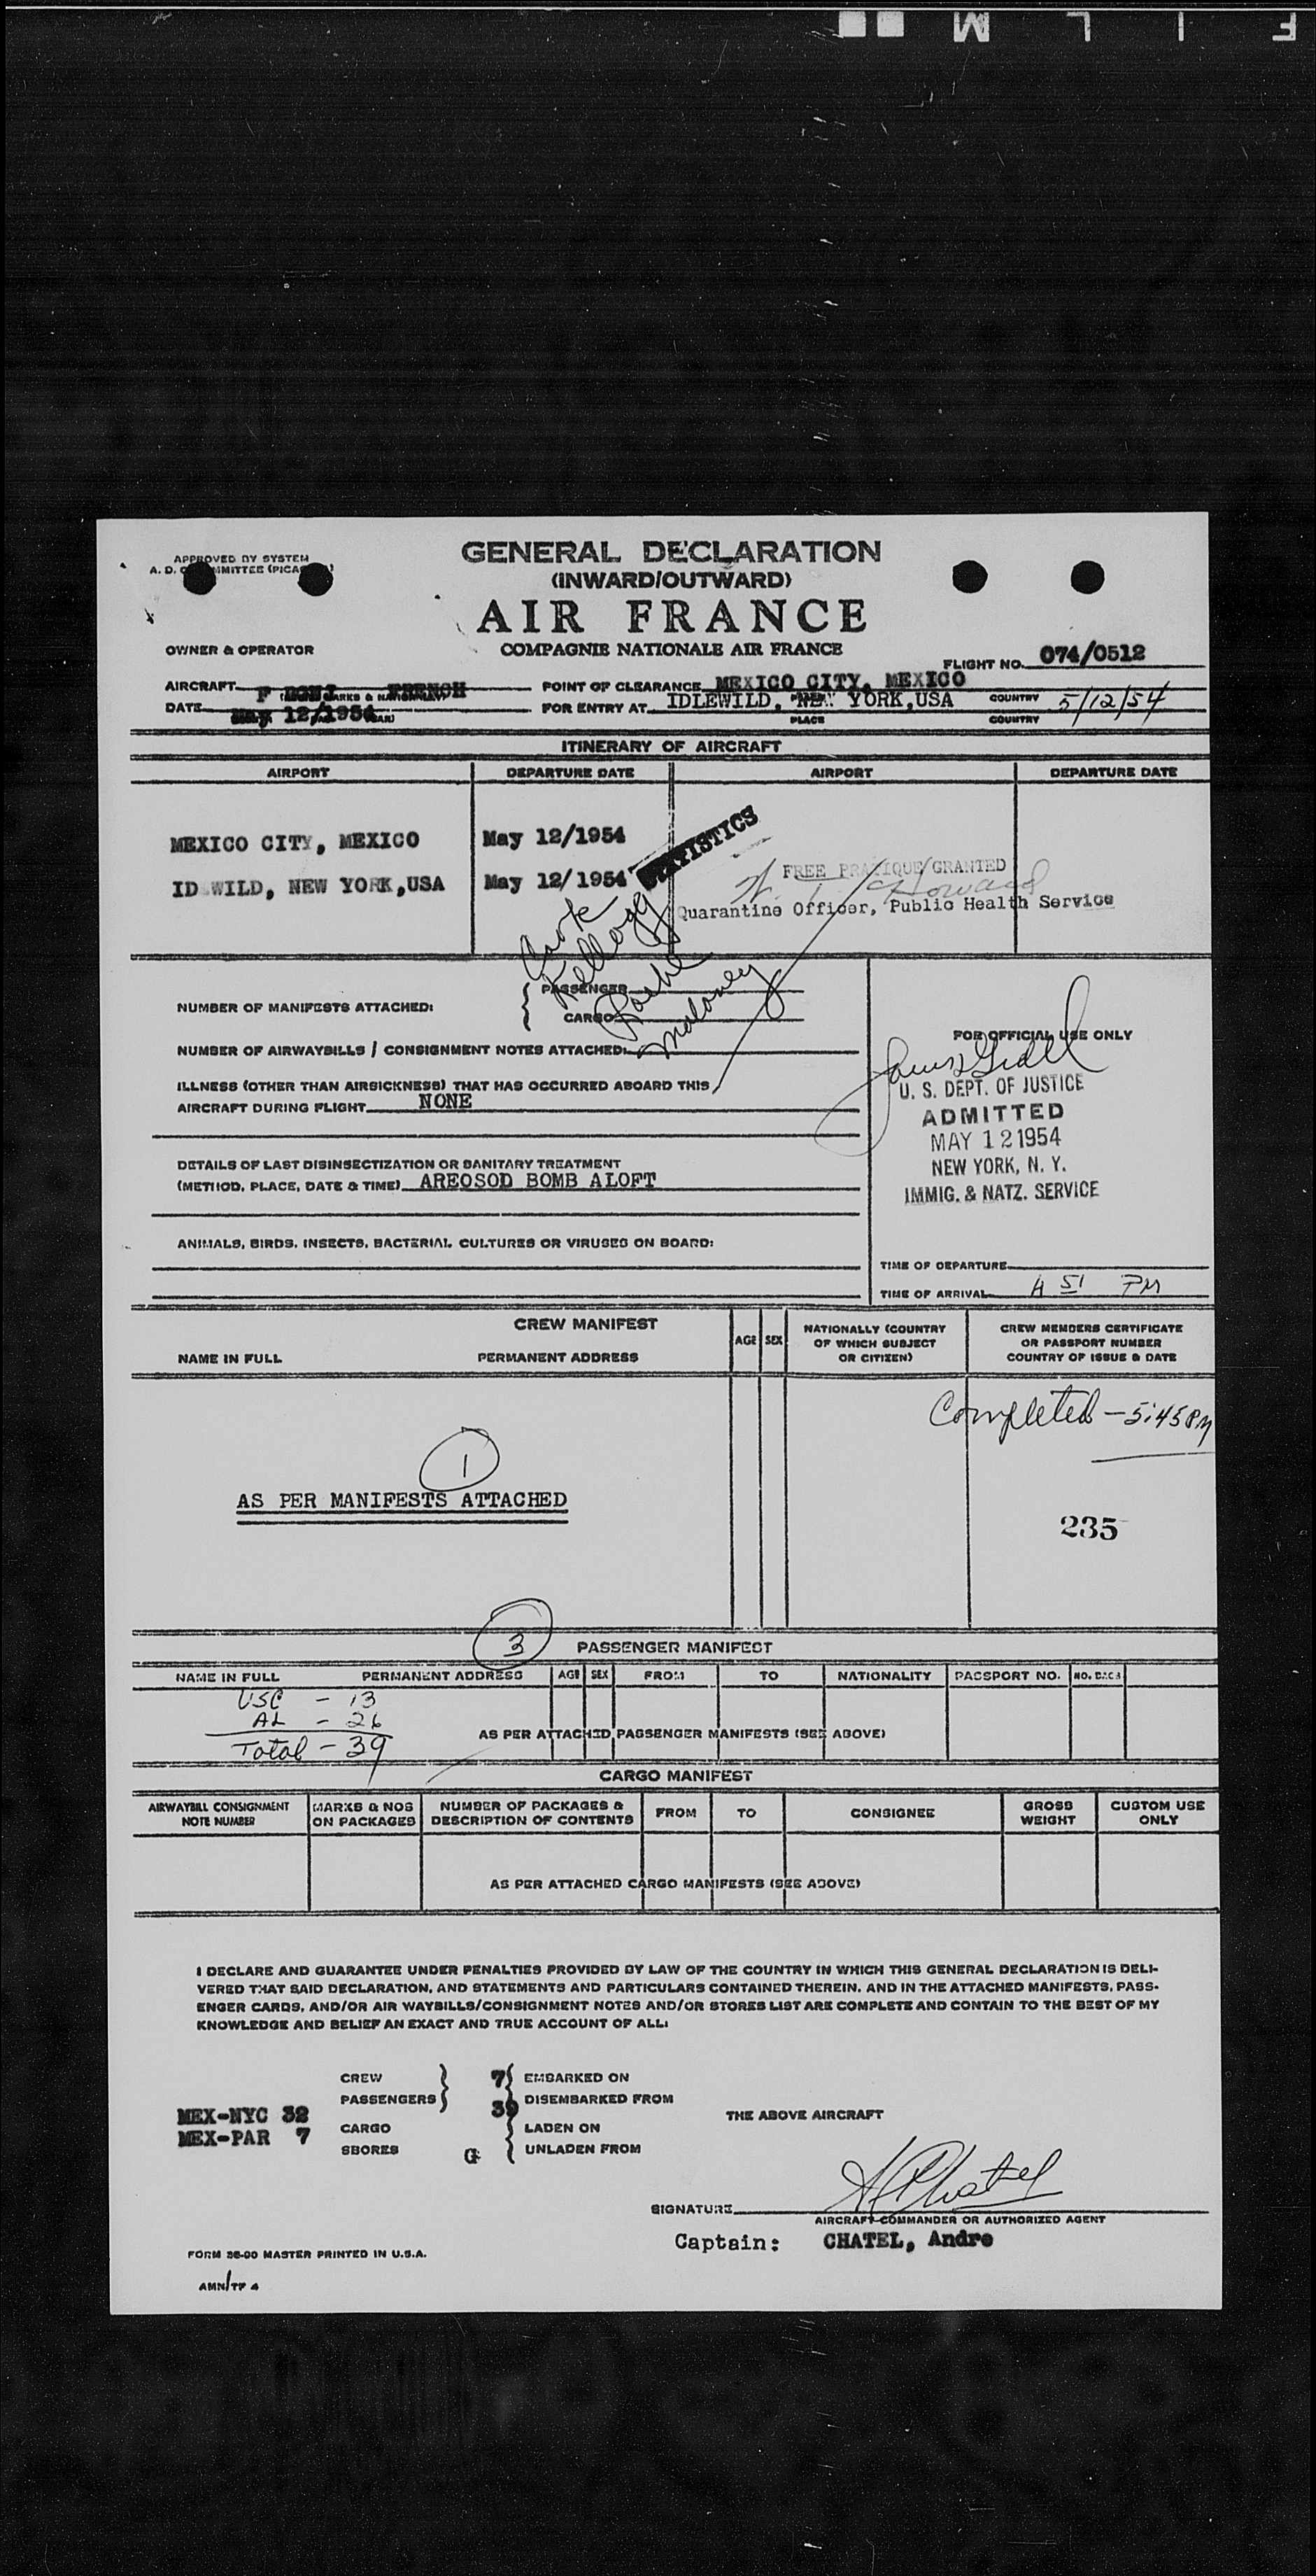 F I L M
APPROVED BY SYSTEM
GENERAL DECLARATION
(INWARD/OUTWARD)
AIR FRANCE
COMPAGNIE NATIONALE AIR FRANCE
OWNER & OPERATOR
FLIGHT NO. 074/0512
AIRCRAFT F FRENCH
POINT OF CLEARANCE MEXICO CITY, MEXICO
DATE May 12/1954
FOR ENTRY AT IDLEWILD, NEW YORK,USA
PLACE
COUNTRY
COUNTRY
5/12/54
ITINERARY OF AIRCRAFT
AIRPORT DEPARTURE DATE AIRPORT DEPARTURE DATE
MEXICO CITY, MEXICO May 12/1954
ID WILD, NEW YORK,USA May 12/1954
STATISTICS
FREE PRATIQUE GRANTED
Howard
Quarantine Officer, Public Health Service
Kellogg
Maloney
NUMBER OF MANIFESTS ATTACHED:
PASSENGER
CARGO
NUMBER OF AIRWAYBILLS / CONSIGNMENT NOTES ATTACHED:
ILLNESS (OTHER THAN AIRSICKNESS) THAT HAS OCCURRED ABOARD THIS
AIRCRAFT DURING FLIGHT NONE
DETAILS OF LAST DISINSECTIZATION OR SANITARY TREATMENT
(METHOD, PLACE, DATE & TIME) AREOSOD BOMB ALOFT
ANIMALS, BIRDS, INSECTS, BACTERIAL CULTURES OR VIRUSES ON BOARD:
FOR OFFICIAL USE ONLY
U. S. DEPT. OF JUSTICE
ADMITTED
MAY 12 1954
NEW YORK, N. Y.
IMMIG. & NATZ. SERVICE
TIME OF DEPARTURE
TIME OF ARRIVAL 4 51 PM
CREW MANIFEST
NAME IN FULL PERMANENT ADDRESS
AGE SEX
NATIONALLY (COUNTRY
OF WHICH SUBJECT
OR CITIZEN)
CREW MEMBERS CERTIFICATE
OR PASSPORT NUMBER
COUNTRY OF ISSUE & DATE
Completed - 5:45 PM
1
AS PER MANIFESTS ATTACHED
235
3
PASSENGER MANIFEST
NAME IN FULL PERMANENT ADDRESS AGE SEX FROM TO NATIONALITY PASSPORT NO. NO. BAGS
USC - 13
AL - 26
Total - 39
AS PER ATTACHED PASSENGER MANIFESTS (SEE ABOVE)
CARGO MANIFEST
AIRWAYBILL CONSIGNMENT
NOTE NUMBER
MARKS & NOS
ON PACKAGES
NUMBER OF PACKAGES &
DESCRIPTION OF CONTENTS
FROM
TO
CONSIGNEE
GROSS
WEIGHT
CUSTOM USE
ONLY
AS PER ATTACHED CARGO MANIFESTS (SEE ABOVE)
I DECLARE AND GUARANTEE UNDER PENALTIES PROVIDED BY LAW OF THE COUNTRY IN WHICH THIS GENERAL DECLARATION IS DELI-
VERED THAT SAID DECLARATION, AND STATEMENTS AND PARTICULARS CONTAINED THEREIN, AND IN THE ATTACHED MANIFESTS, PASS-
ENGER CARDS, AND/OR AIR WAYBILLS/CONSIGNMENT NOTES AND/OR STORES LIST ARE COMPLETE AND CONTAIN TO THE BEST OF MY
KNOWLEDGE AND BELIEF AN EXACT AND TRUE ACCOUNT OF ALL:
CREW 7 EMBARKED ON
PASSENGERS 39 DISEMBARKED FROM
MEX-NYC 32
MEX-PAR 7
CARGO LADEN ON
SBORES G UNLADEN FROM
THE ABOVE AIRCRAFT
SIGNATURE A Chatel
AIRCRAFT COMMANDER OR AUTHORIZED AGENT
Captain: CHATEL, Andre
FORM 26-00 MASTER PRINTED IN U.S.A.
AMN/TF 4